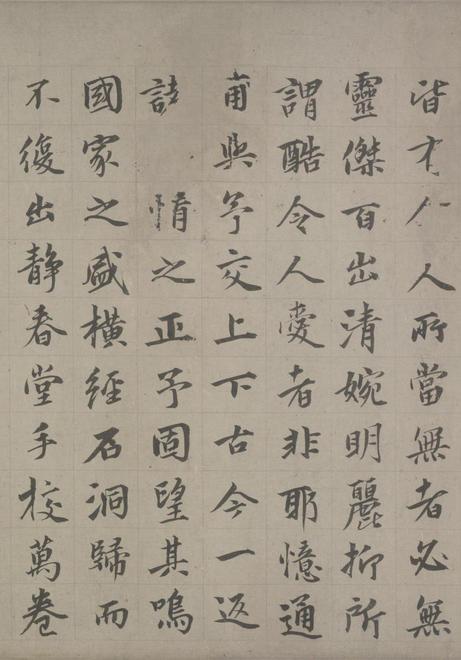 皆才人所當無者必無
靈傑百出清婉明麗抑所
謂酷令人愛者非耶憶通
甫與予交上下古今一返
情之正予固望其鳴
國家之盛橫經石洞歸而
不復出靜春堂手校萬卷